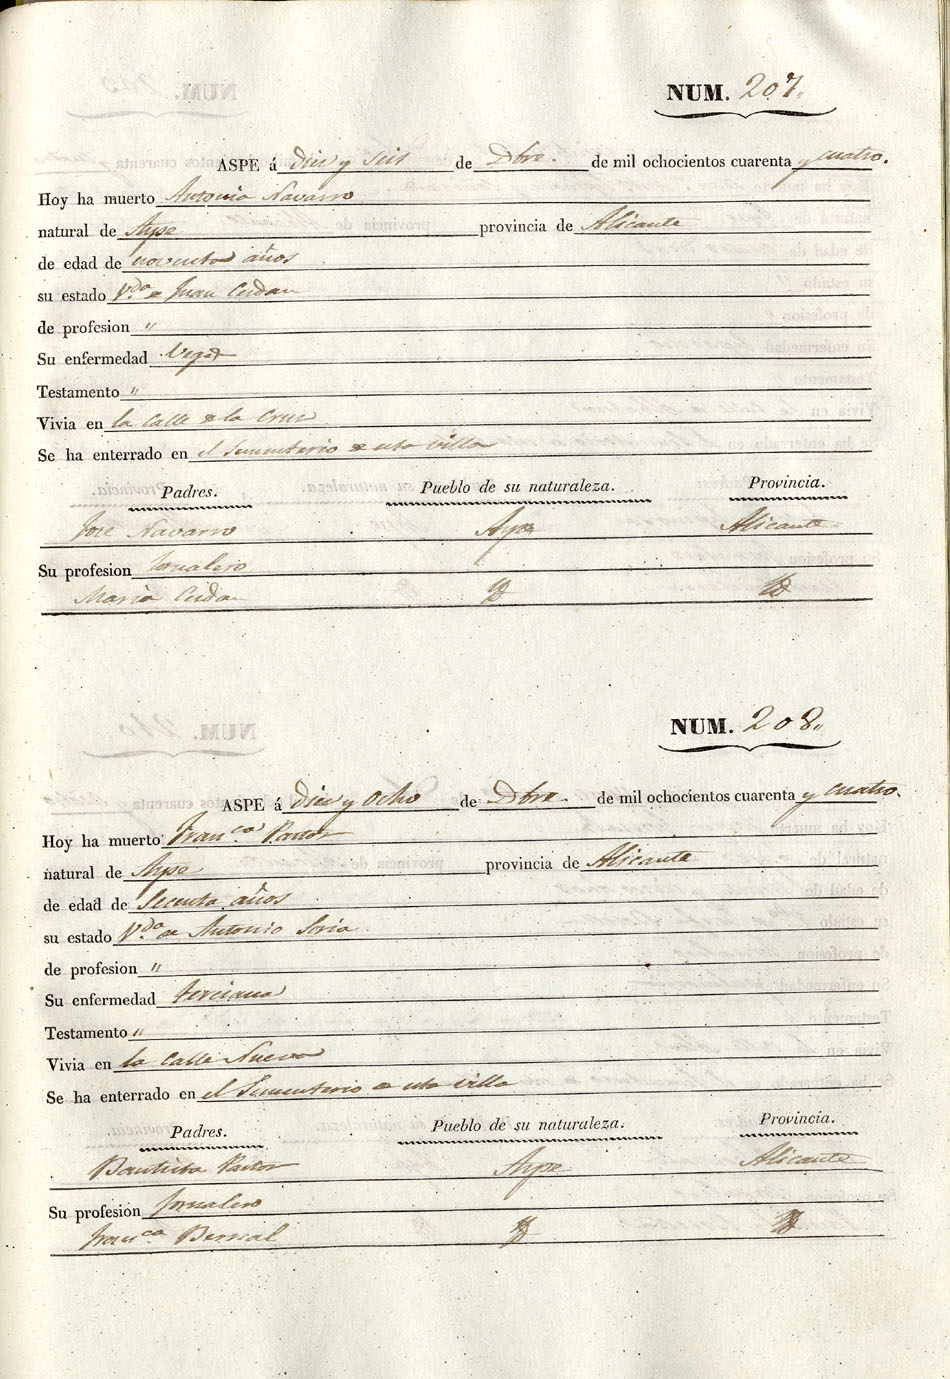 NUM. 207.
ASPE á diez y seis de Dbre. de mil ochocientos cuarenta y cuatro.
Hoy ha muerto Antonia Navarro
natural de Aspe provincia de Alicante
de edad de noventa años
su estado V.da de Juan Cerdan
de profesion "
Su enfermedad Veged
Testamento "
Vivia en la Calle de la Cruz
Se ha enterrado en el Sementerio de esta villa
Padres. Pueblo de su naturaleza. Provincia.
Jose Navarro Aspe Alicante
Su profesion Jornalero
Maria Cerdan
NUM. 208.
ASPE á diez y ocho de Dbre. de mil ochocientos cuarenta y cuatro.
Hoy ha muerto Fran.ca Pastor
natural de Aspe provincia de Alicante
de edad de Secenta años
su estado V.da de Antonio Soria
de profesion "
Su enfermedad terciana
Testamento "
Vivia en la Calle Nueva
Se ha enterrado en el Sementerio de esta villa
Padres. Pueblo de su naturaleza. Provincia.
Bautista Pastor Aspe Alicante
Su profesion Jornalero
Fran.ca Bernal